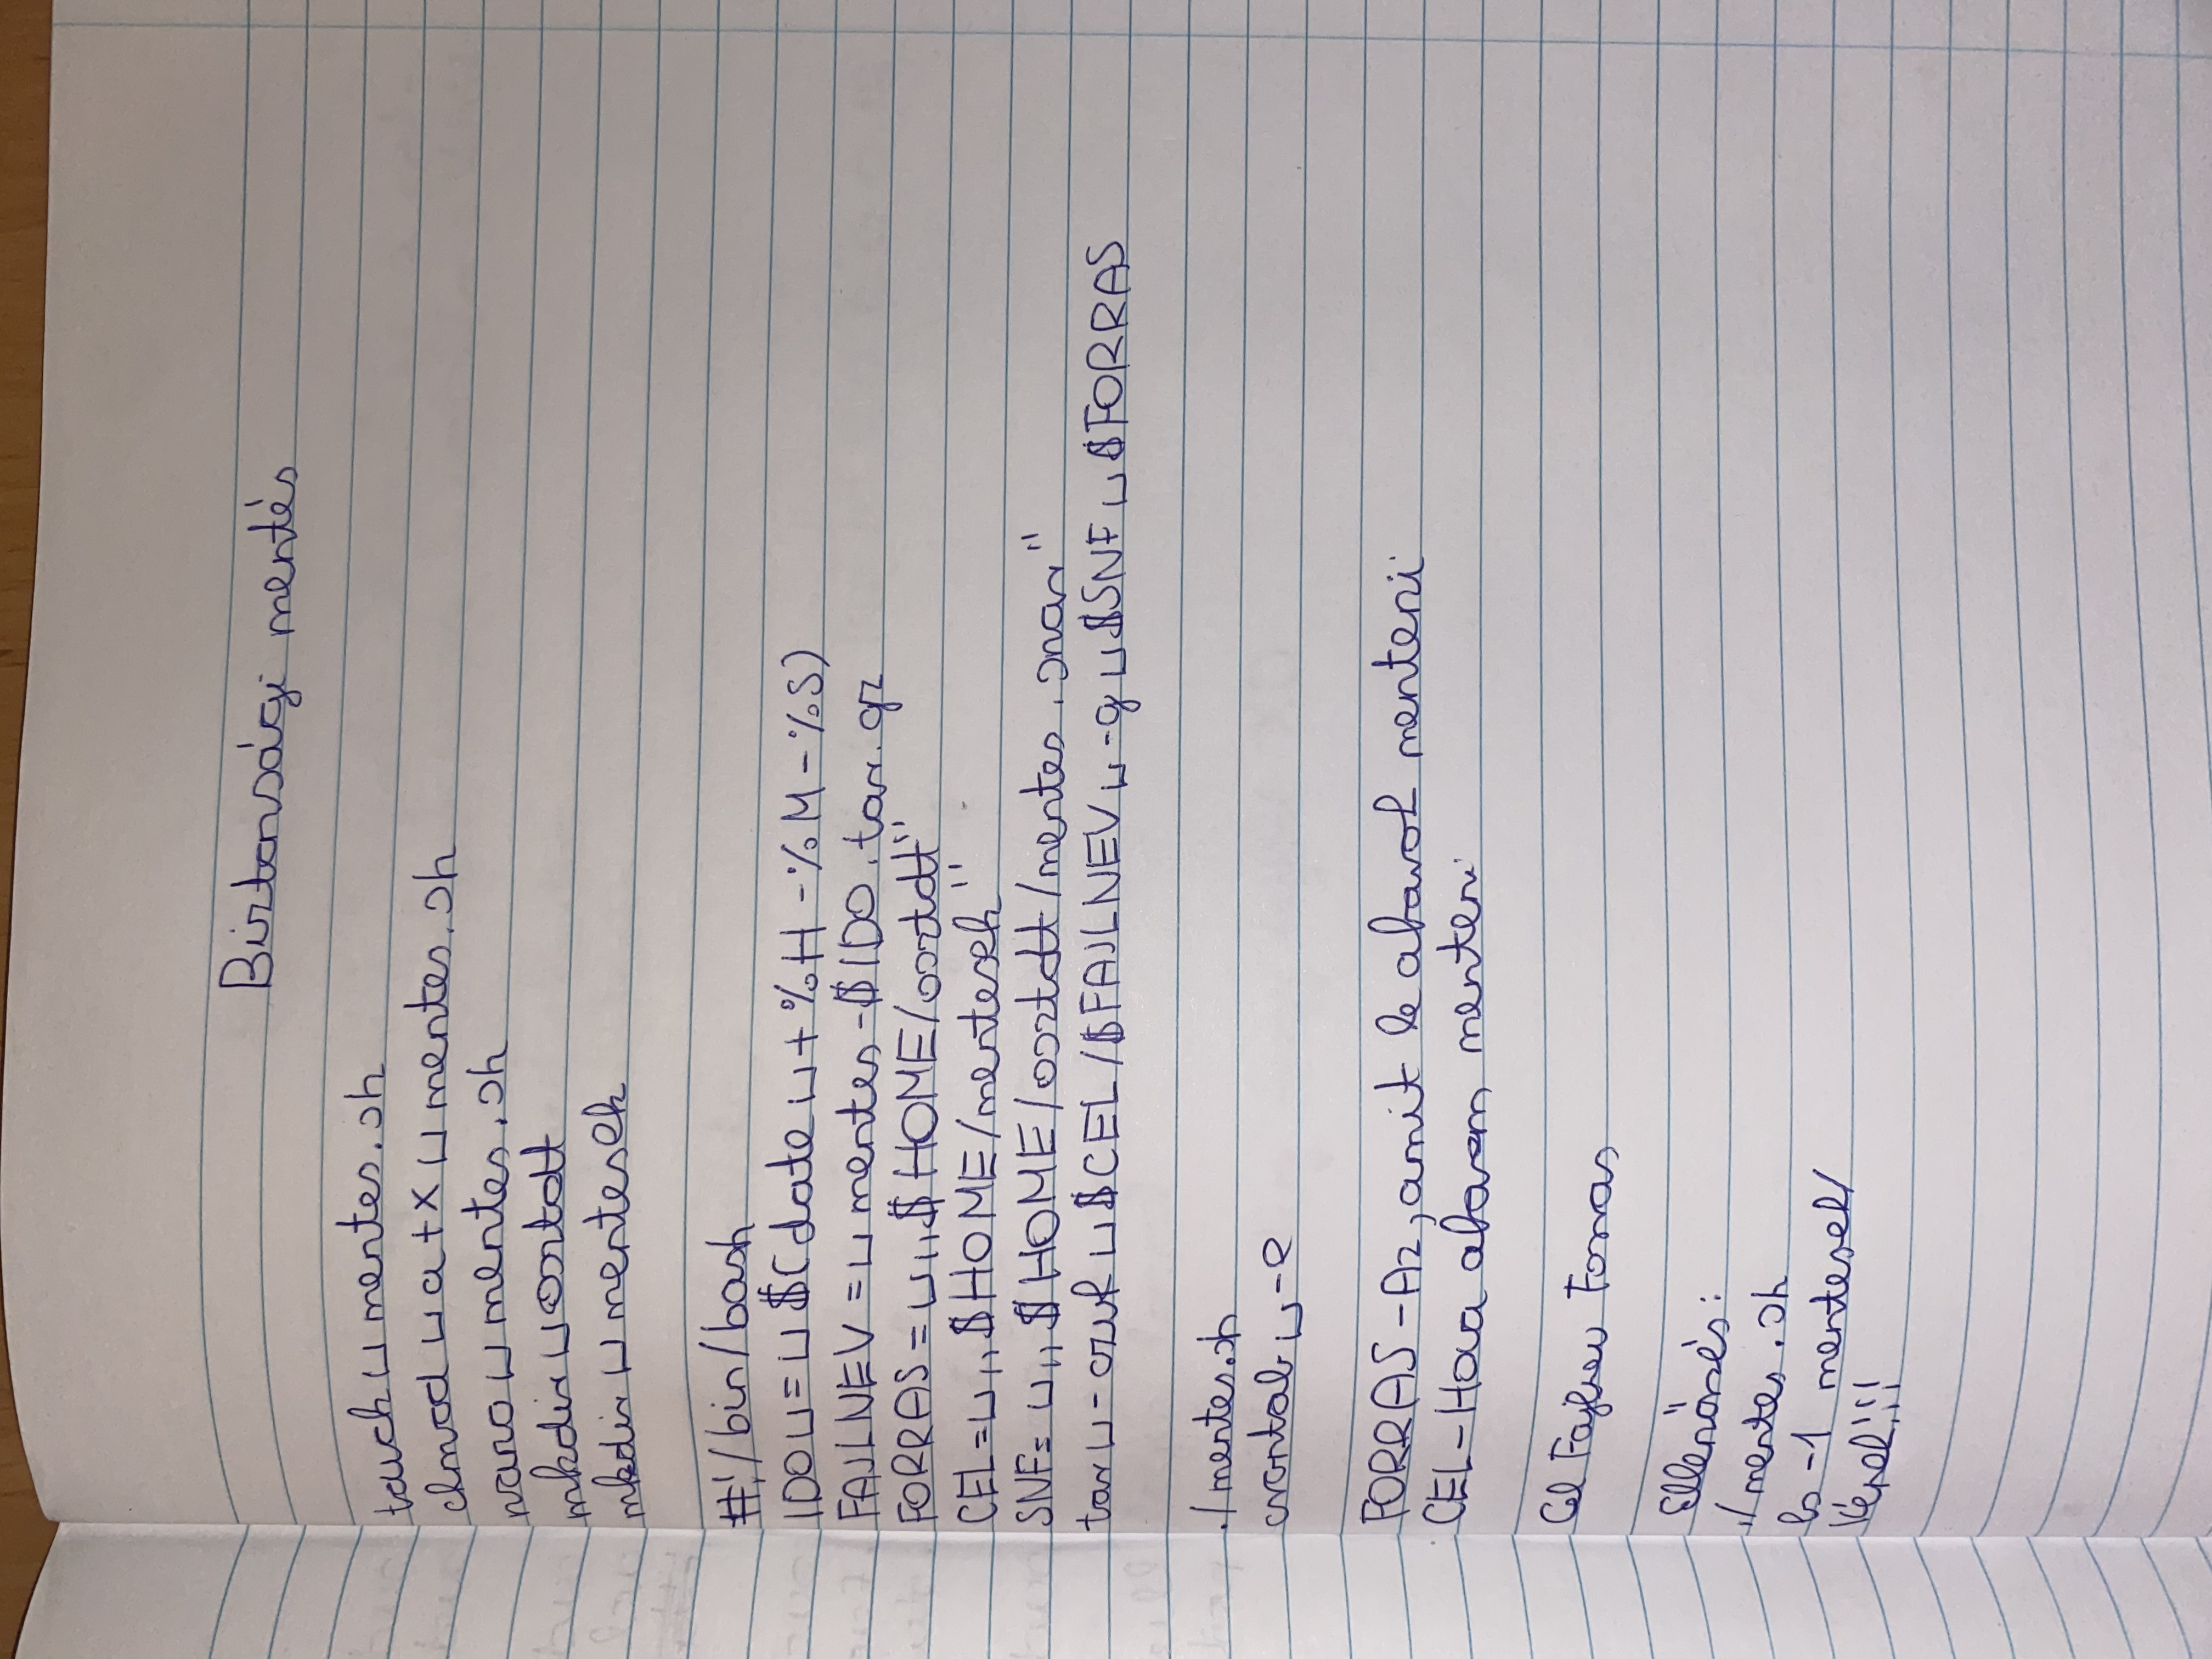 Biztonsági mentés
touch ⌴ mentes.sh
chmod ⌴ a+x ⌴ mentes.sh
nano ⌴ mentes.sh
mkdir ⌴ osztott
mkdir ⌴ mentesek
#!/bin/bash
IDO ⌴ = ⌴ $(date ⌴ +%H-%M-%S)
FAJLNEV = ⌴ mentes-$IDO.tar.gz
FORRAS = ⌴ „$HOME/osztott"
CEL= ⌴ „$HOME/mentesek"
SNF= ⌴ „$HOME/osztott/mentes.snar"
tar ⌴ -czvf ⌴ $CEL/$FAJLNEV ⌴ -g ⌴ $SNF ⌴ $FORRAS
./mentes.sh
crontab ⌴ -e
FORRAS-Az, amit le akarok menteni
CEL-Hova akarom menteni
Cel Fajlnev Forras
Ellenőrzés:
./mentes.sh
ls -1 mentesek/
!!!